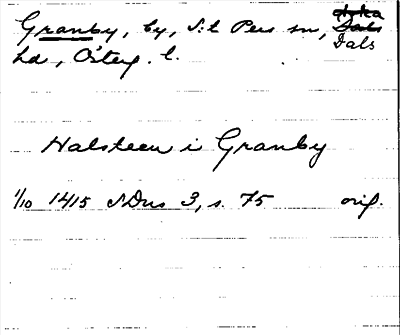 Granby, by, S:t Pers sn, Dals
hd, Österg. l.
Halsteen i Granby
1/10 1415 SDns 3, s. 75 orig.